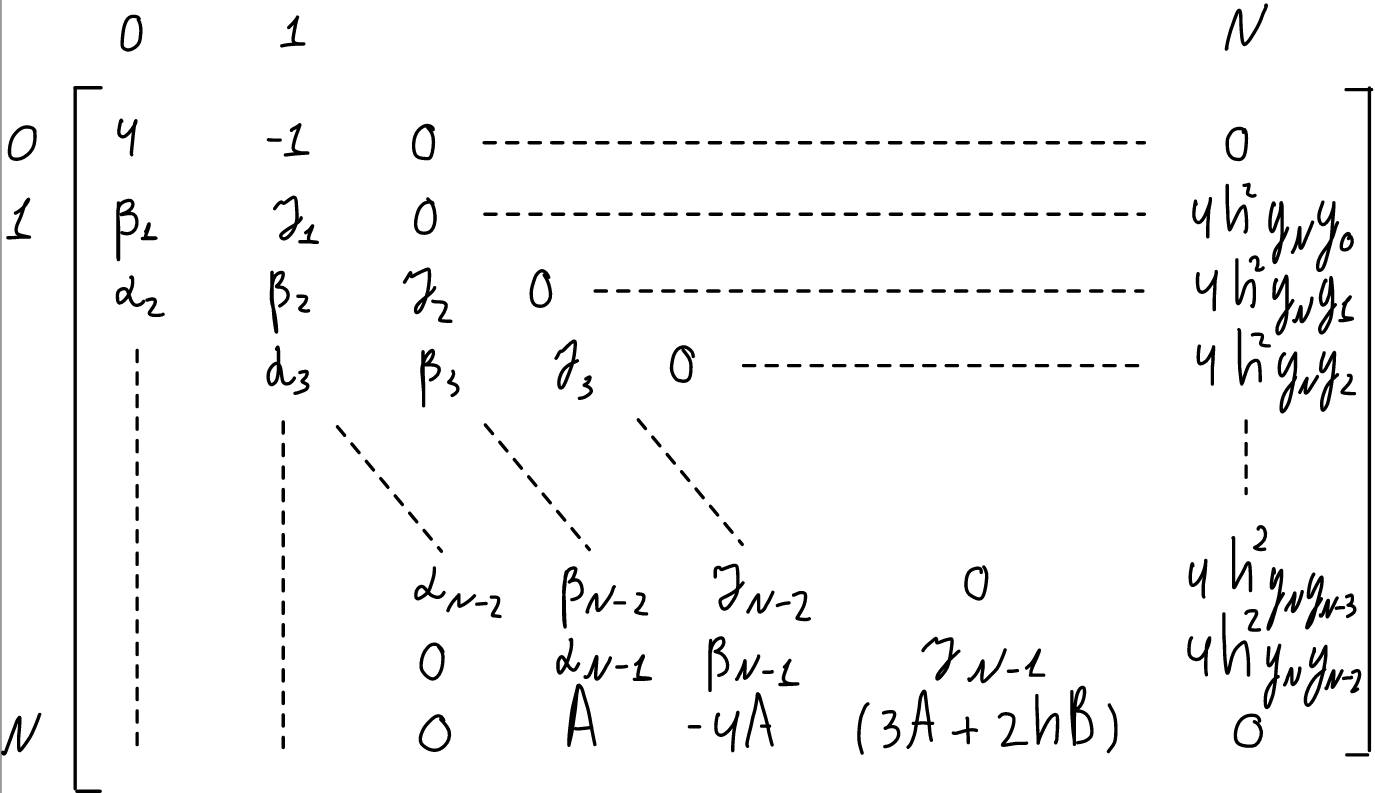 0 1 N
0 4 -1 0 ---------- 0
1 β₁ γ₁ 0 ---------- 4h²y_Ny₀
α₂ β₂ γ₂ 0 ---------- 4h²y_Ny₁
α₃ β₃ γ₃ 0 ---------- 4h²y_Ny₂
α_{N-2} β_{N-2} γ_{N-2} 0 4h²y_Ny_{N-3}
0 α_{N-1} β_{N-1} γ_{N-1} 4h²y_Ny_{N-2}
N 0 A -4A (3A + 2hB) 0